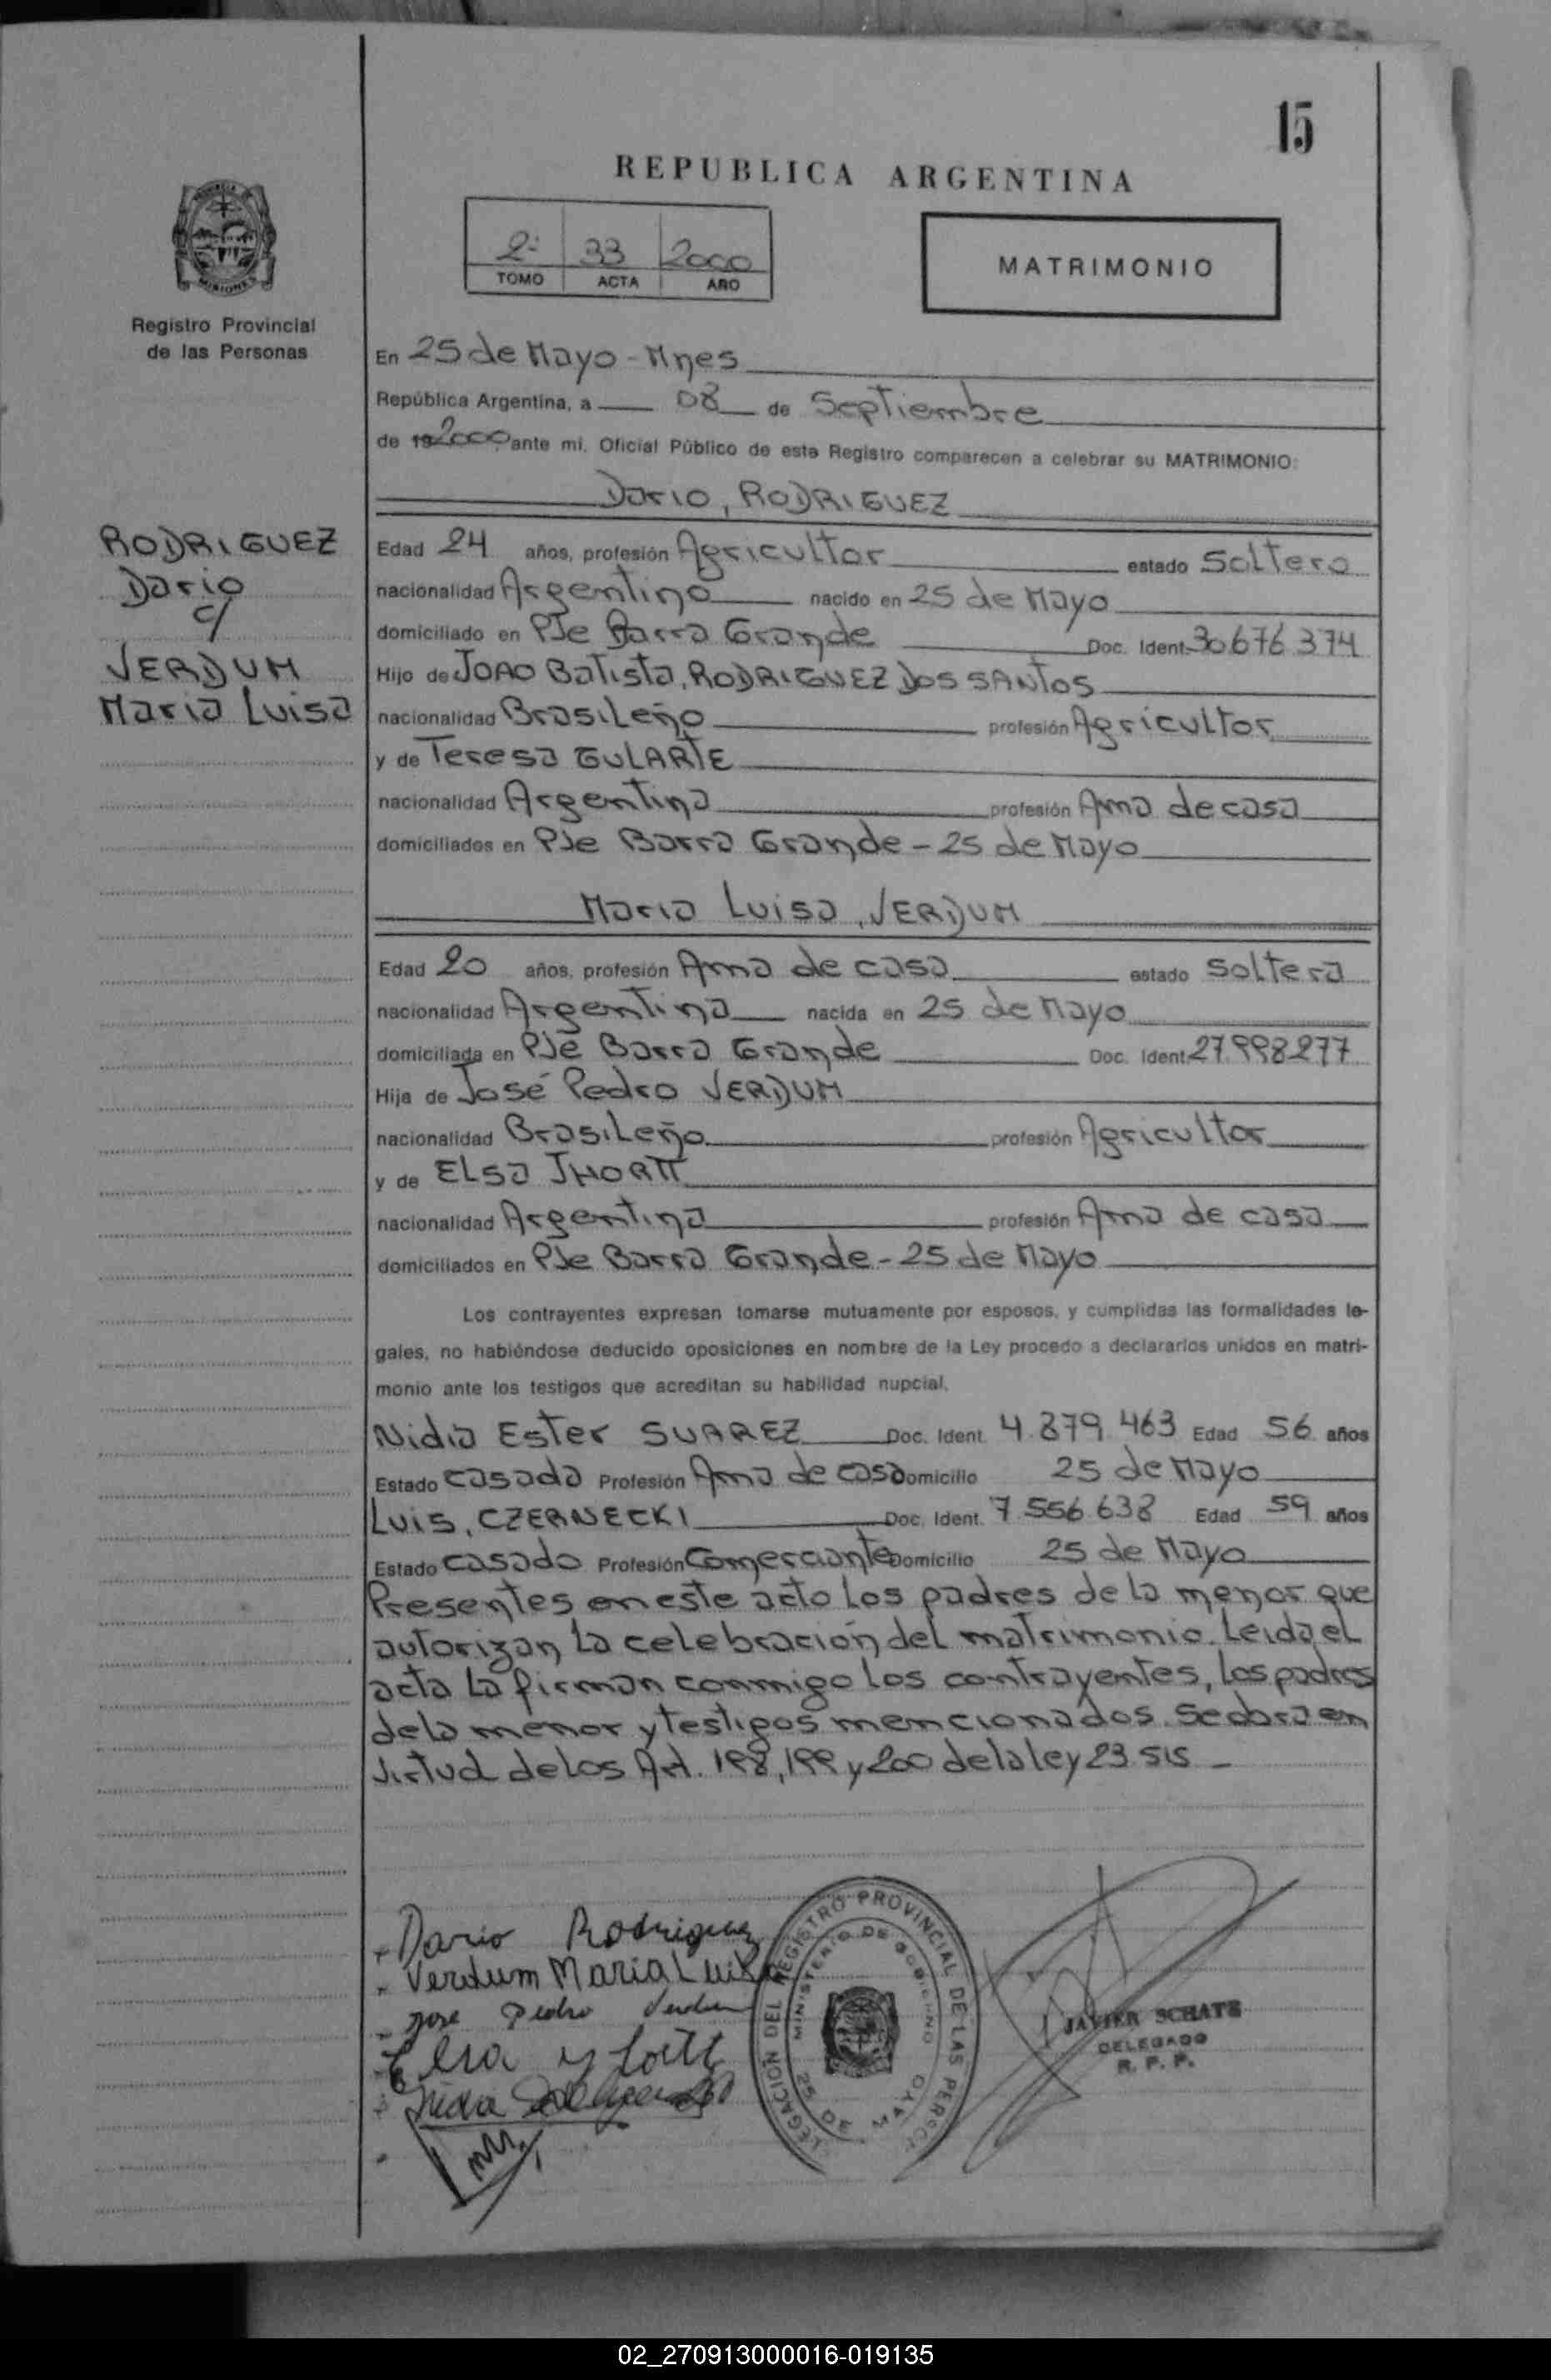 15
REPUBLICA ARGENTINA
2º 33 2000
TOMO ACTA AÑO
MATRIMONIO
MISIONES
Registro Provincial
de las Personas
RODRIGUEZ
Dario
c/
VERDUM
Maria Luisa
En 25 de Mayo - Mnes
República Argentina, a 08 de Septiembre
de 19 2000 ante mí, Oficial Público de este Registro comparecen a celebrar su MATRIMONIO:
Dario, RODRIGUEZ
Edad 24 años, profesión Agricultor estado Soltero
nacionalidad Argentino nacido en 25 de Mayo
domiciliado en PJe Barra Grande Doc. Ident. 30.676.374
Hijo de JOAO Batista, RODRIGUEZ DOS SANTOS
nacionalidad Brasileño profesión Agricultor
y de Teresa GULARTE
nacionalidad Argentina profesión Ama de casa
domiciliados en PJe Barra Grande - 25 de Mayo
Maria Luisa, VERDUM
Edad 20 años, profesión Ama de casa estado Soltera
nacionalidad Argentina nacida en 25 de Mayo
domiciliada en PJe Barra Grande Doc. Ident. 27.998.277
Hija de José Pedro VERDUM
nacionalidad Brasileño profesión Agricultor
y de ELSA
nacionalidad Argentina profesión Ama de casa
domiciliados en PJe Barra Grande - 25 de Mayo
Los contrayentes expresan tomarse mutuamente por esposos, y cumplidas las formalidades le-
gales, no habiéndose deducido oposiciones en nombre de la Ley procedo a declararlos unidos en matri-
monio ante los testigos que acreditan su habilidad nupcial.
Nidia Ester SUAREZ Doc. Ident. 4.879.463 Edad 56 años
Estado casada Profesión Ama de casa Domicilio 25 de Mayo
Luis, CZERNECKI Doc. Ident. 7.556.638 Edad 59 años
Estado casado Profesión Comerciante Domicilio 25 de Mayo
Presentes en este acto los padres de la menor que
autorizan la celebración del matrimonio. Leida el
acta la firman conmigo los contrayentes, los padres
de la menor y testigos mencionados. Se labra en
virtud de los Art. 198, 199 y 200 de la ley 23.515 -
Dario Rodriguez
Verdum Maria Luisa
Jose Pedro Verdum
DELEGACION DEL REGISTRO PROVINCIAL DE LAS PERSO
MINISTERIO DE GOBIERNO
25 DE MAYO
JAVIER SCHATZ
DELEGADO
R. P. P.
02_270913000016-019135